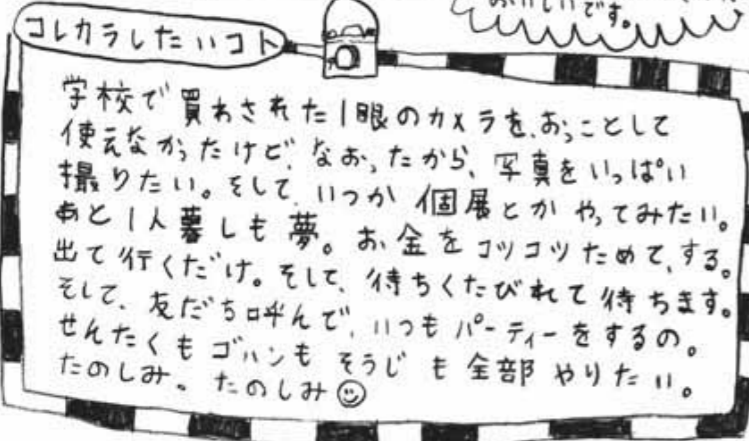 おいしいです。
コレカラしたいコト
学校で買わされた1眼のカメラを、おっことして
使えなかったけど、なおったから、写真をいっぱい
撮りたい。そして、いつか個展とかやってみたい。
あと1人暮しも夢。お金をコツコツためて、する。
出て行くだけ。そして、待ちくたびれて待ちます。
そして、友だち呼んで、いつもパーティーをするの。
せんたくもゴハンもそうじも全部やりたい。
たのしみ。たのしみ☺